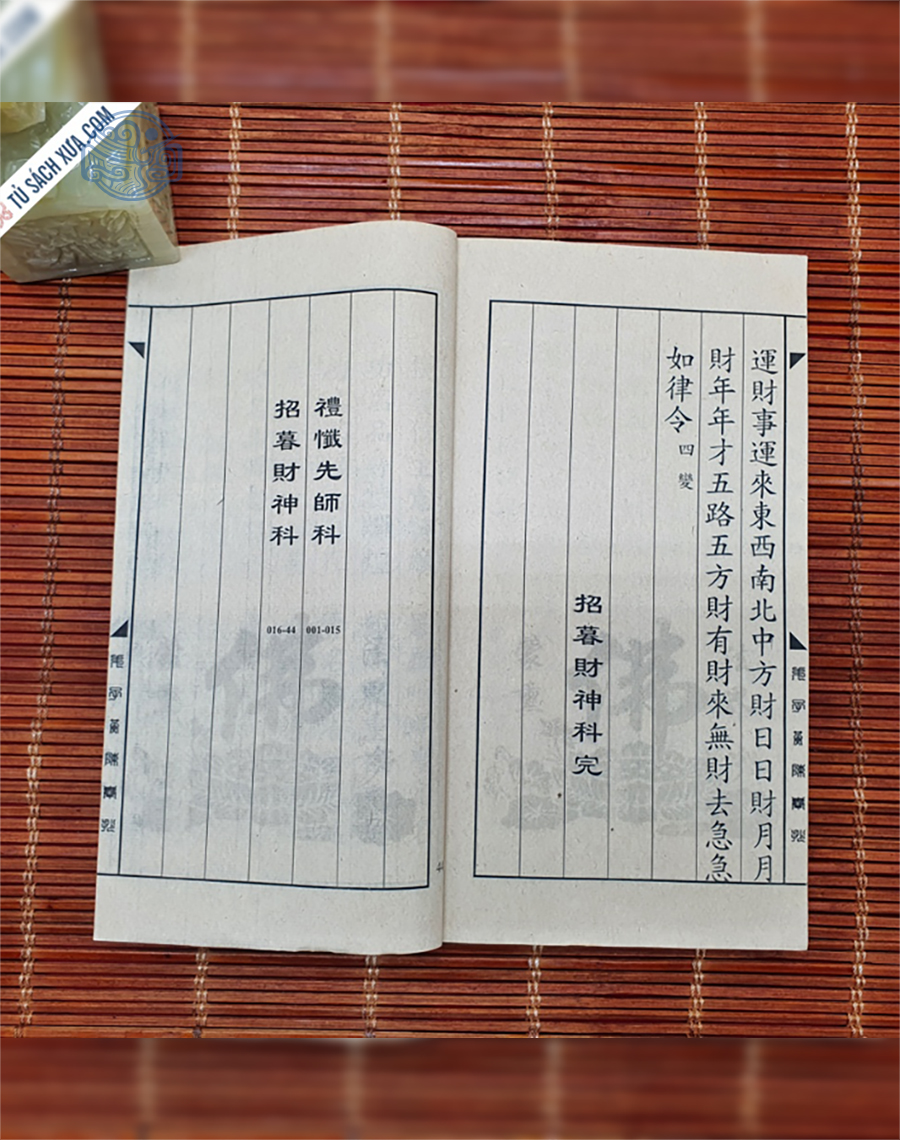 TỦ SÁCH XƯA.COM
運財事運來東西南北中方財日日財月月
財年年才五路五方財有財來無財去急急
如律令 四變
招暮財神科完
禮懺先師科 001-015
招暮財神科 016-44